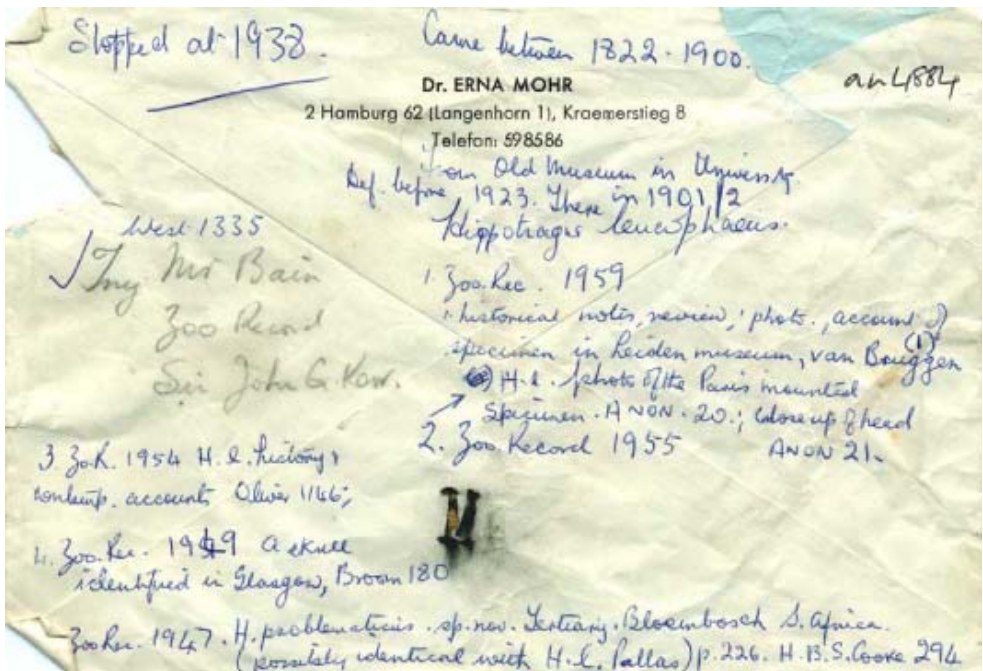 Stopped at 1938.
Came between 1822 - 1900.
an 4884
Dr. ERNA MOHR
2 Hamburg 62 (Langenhorn 1), Kraemerstieg 8
Telefon: 598586
from Old Museum in University.
Def. before 1923. There in 1901/2
Hippotragus leucophaeus.
West 1335
Try Mr Bain
Zoo Record
Sir John G. Kerr.
1. Zoo. Rec. 1959
historical notes, review, photo., account of
specimen in Leiden museum, van Bruggen (1)
H.l. photo of the Paris mounted
specimen. ANON. 20.; close up of head
ANON 21.
2. Zoo. Record 1955
3 Zo.R. 1954 H.l. history,
contemp. accounts Oliver 1146;
4. Zoo. Rec. 1949 a skull
identified in Glasgow, Broom 180
Zoo Rec. 1947. H. problematicus. sp. nov. Tertiary. Bloembosch S. Africa.
(possibly identical with H.l. Pallas) p. 226. H.B.S. Cooke 294